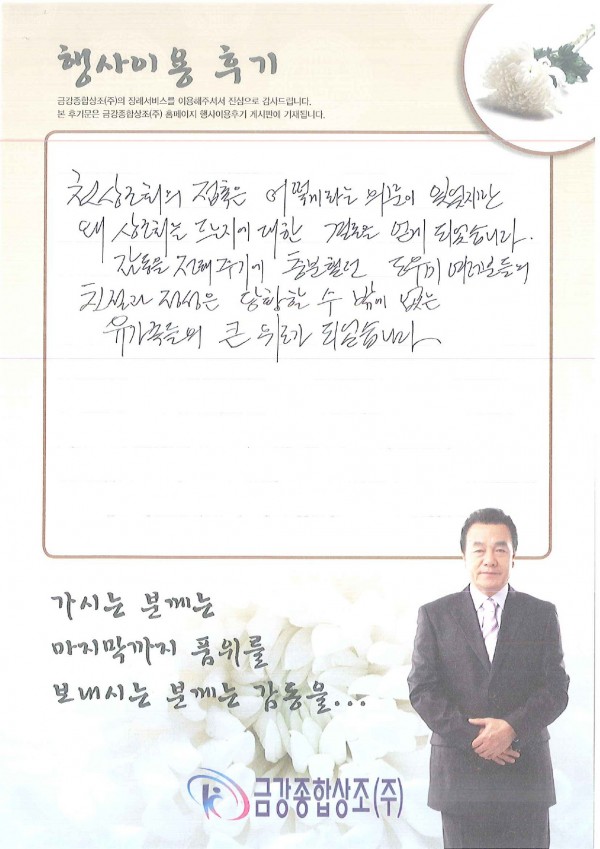 행사이용 후기
금강종합상조(주)의 장례서비스를 이용해주셔서 진심으로 감사드립니다.
본 후기문은 금강종합상조(주) 홈페이지 행사이용후기 게시판에 기재됩니다.
첫 상조회의 접촉은 어떻게라는 의문이 있었지만
왜 상조회를 드는지에 대한 결론을 얻게 되었습니다.
감동을 전해주기에 충분했던 도우미 여러분들의
친절과 정성은 당황할 수 밖에 없는
유가족들의 큰 위로가 되었습니다.
가시는 분께는
마지막까지 품위를
보내시는 분께는 감동을...
금강종합상조(주)